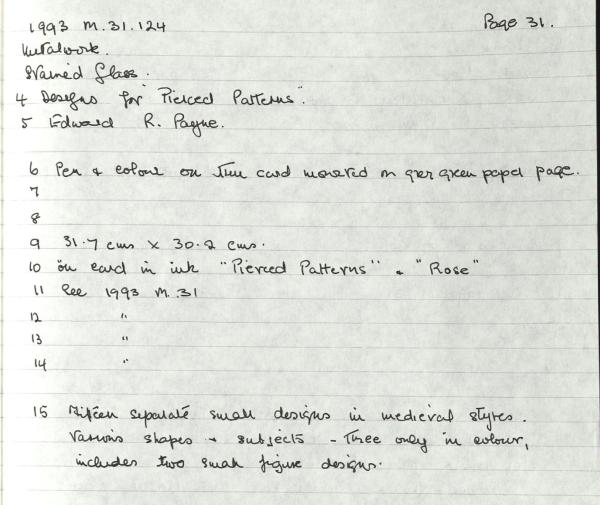 1993 M.31.124 Page 31.
Metalwork.
Stained Glass.
4 Designs for "Pierced Patterns".
5 Edward R. Payne.
6 Pen & colour on thin card mounted on grey green paper page.
7
8
9 31.7 cms × 30.2 cms.
10 on card in ink "Pierced Patterns" & "Rose"
11 See 1993 M.31
12 "
13 "
14 "
15 Fifteen separate small designs in medieval styles.
Various shapes + subjects - Three only in colour,
includes two small figure designs.